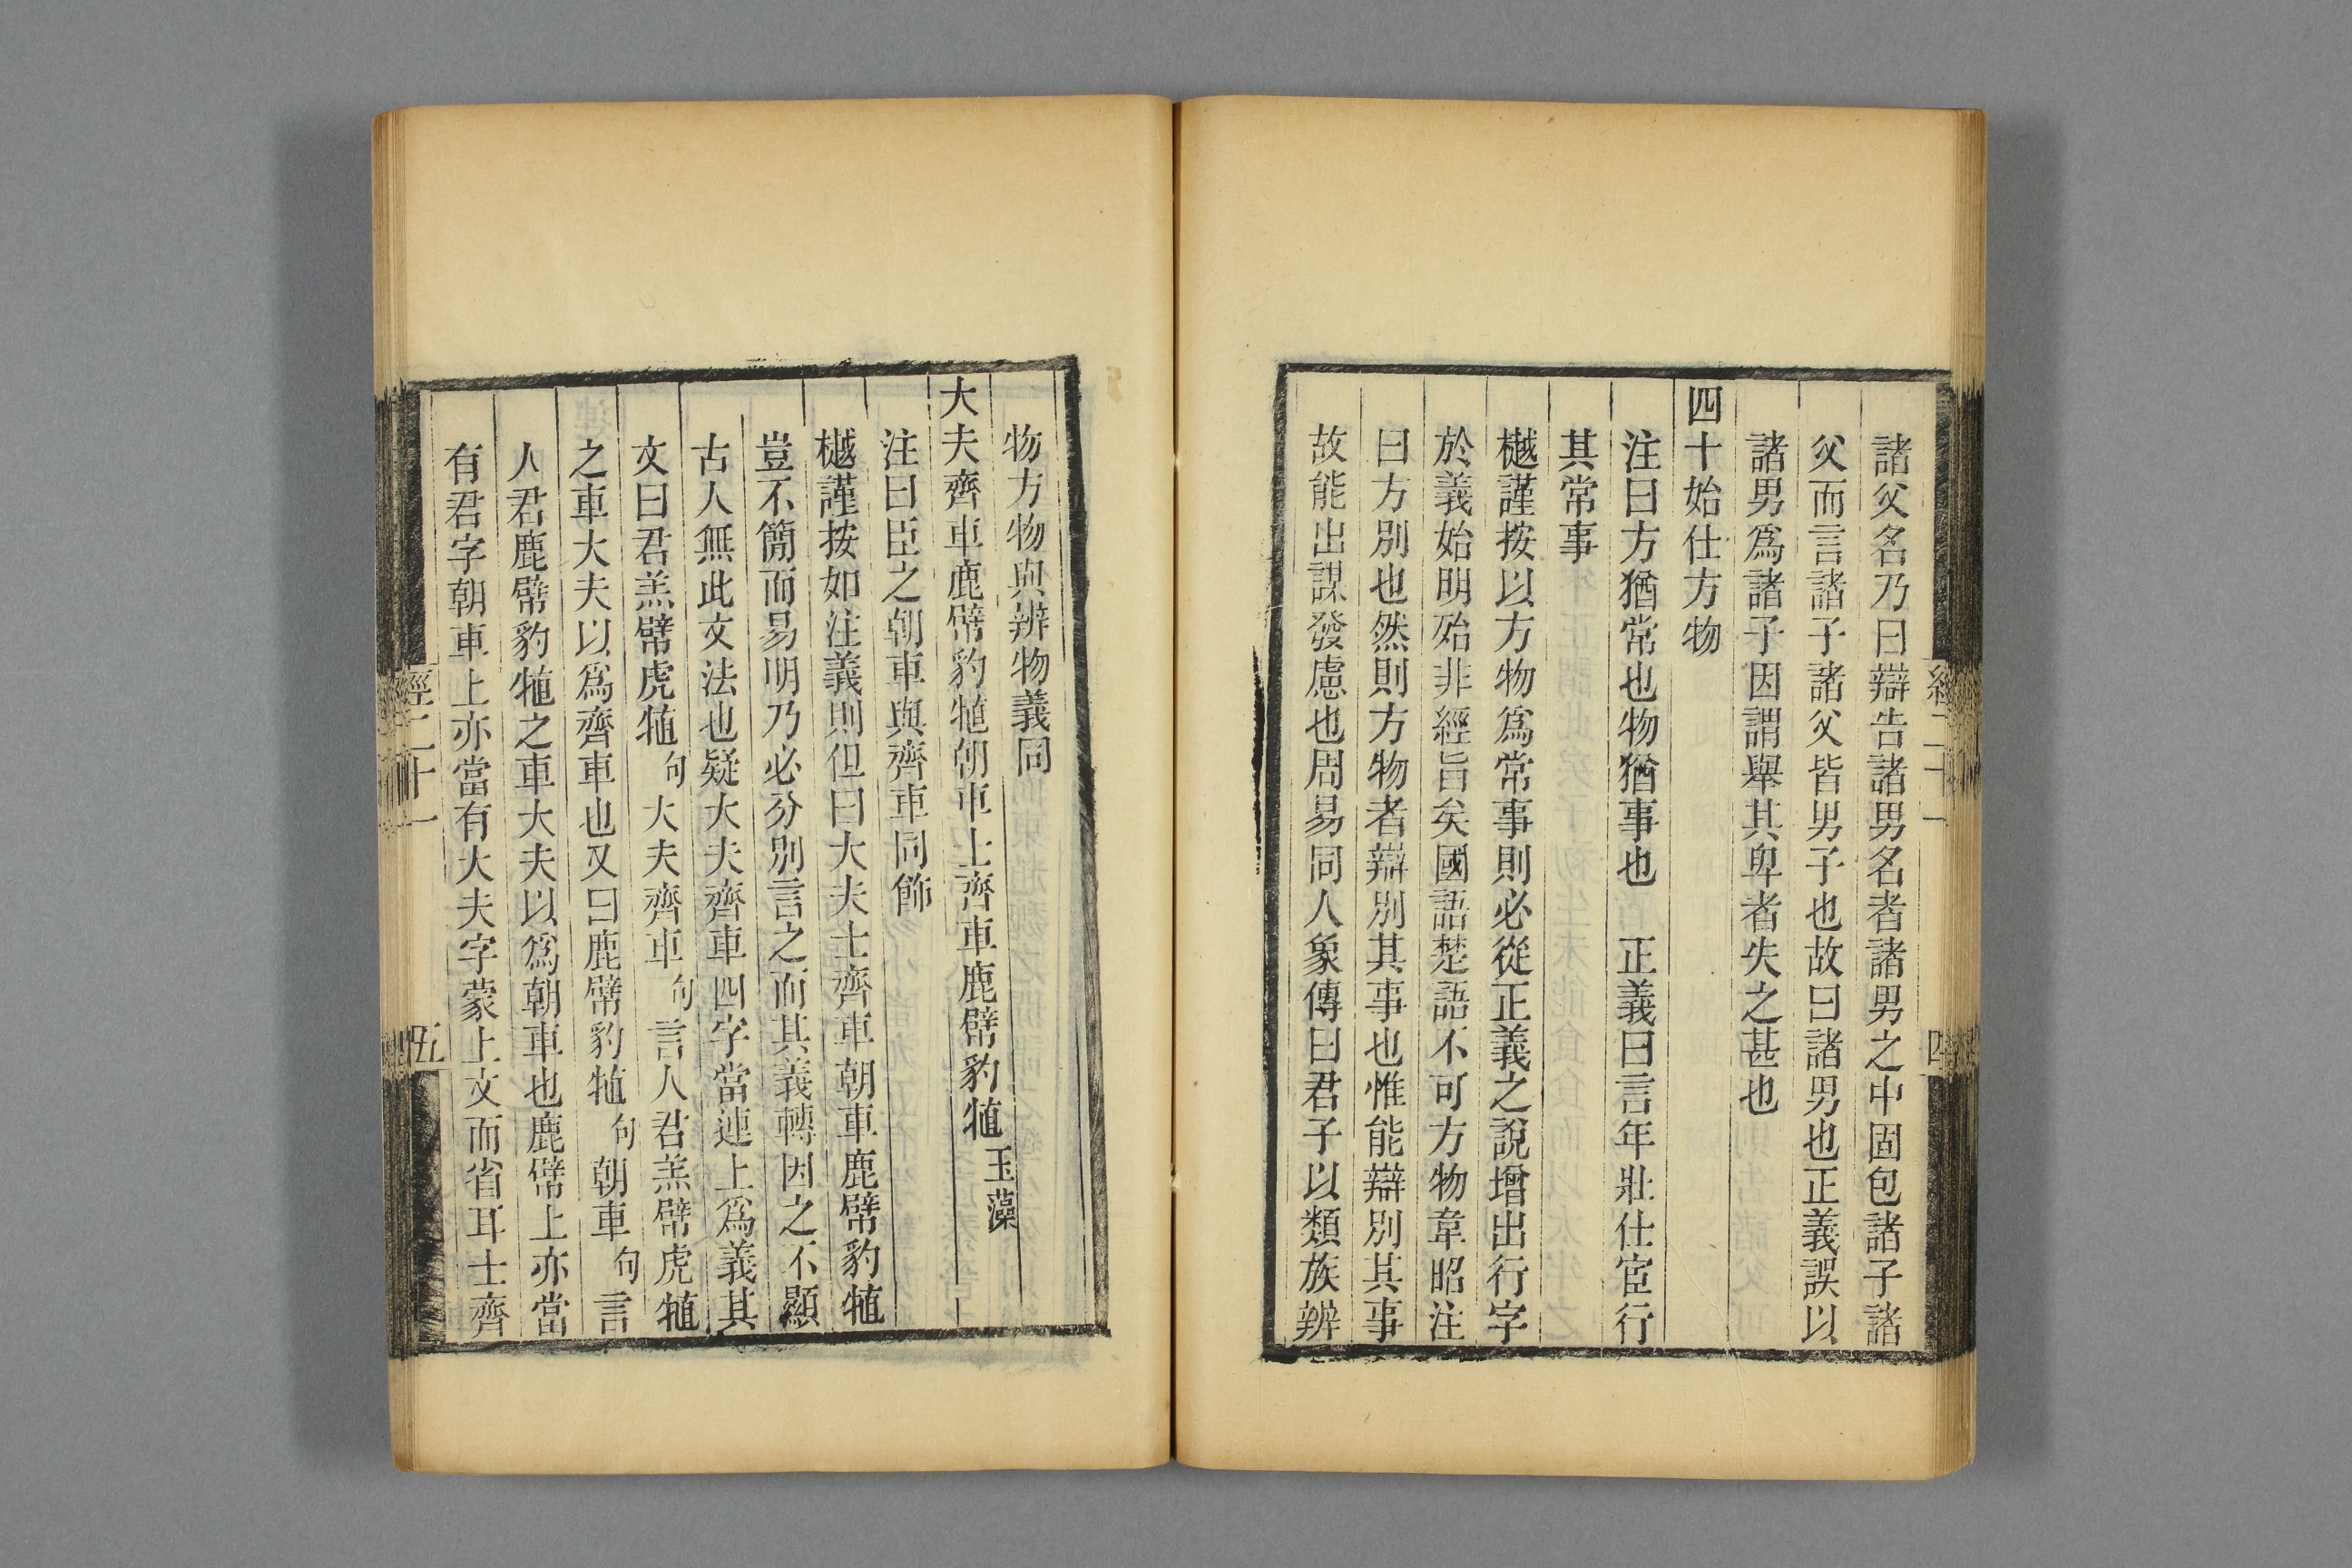 諸父名乃曰辯告諸男名者諸男之中固包諸子諸
父而言諸子諸父皆男子也故曰諸男也正義誤以
諸男爲諸子因謂舉其卑者失之甚也
四十始仕方物
注曰方猶常也物猶事也　正義曰言年壯仕宦行
其常事
樾謹按以方物爲常事則必從正義之說增出行字
於義始明殆非經旨矣國語楚語不可方物韋昭注
曰方別也然則方物者辯別其事也惟能辯別其事
故能出謀發慮也周易同人象傳曰君子以類族辨
物方物與辨物義同
大夫齊車鹿幦豹犆朝車士齊車鹿幦豹犆玉藻
注曰臣之朝車與齊車同飾
樾謹按如注義則但曰大夫士齊車朝車鹿幦豹犆
豈不簡而易明乃必分別言之而其義轉因之不顯
古人無此文法也疑大夫齊車四字當連上爲義其
文曰君羔幦虎犆句大夫齊車句言人君羔幦虎犆
之車大夫以爲齊車也又曰鹿幦豹犆句朝車句言
人君鹿幦豹犆之車大夫以爲朝車也鹿幦上亦當
有君字朝車上亦當有大夫字蒙上文而省耳士齊
經二十一
五